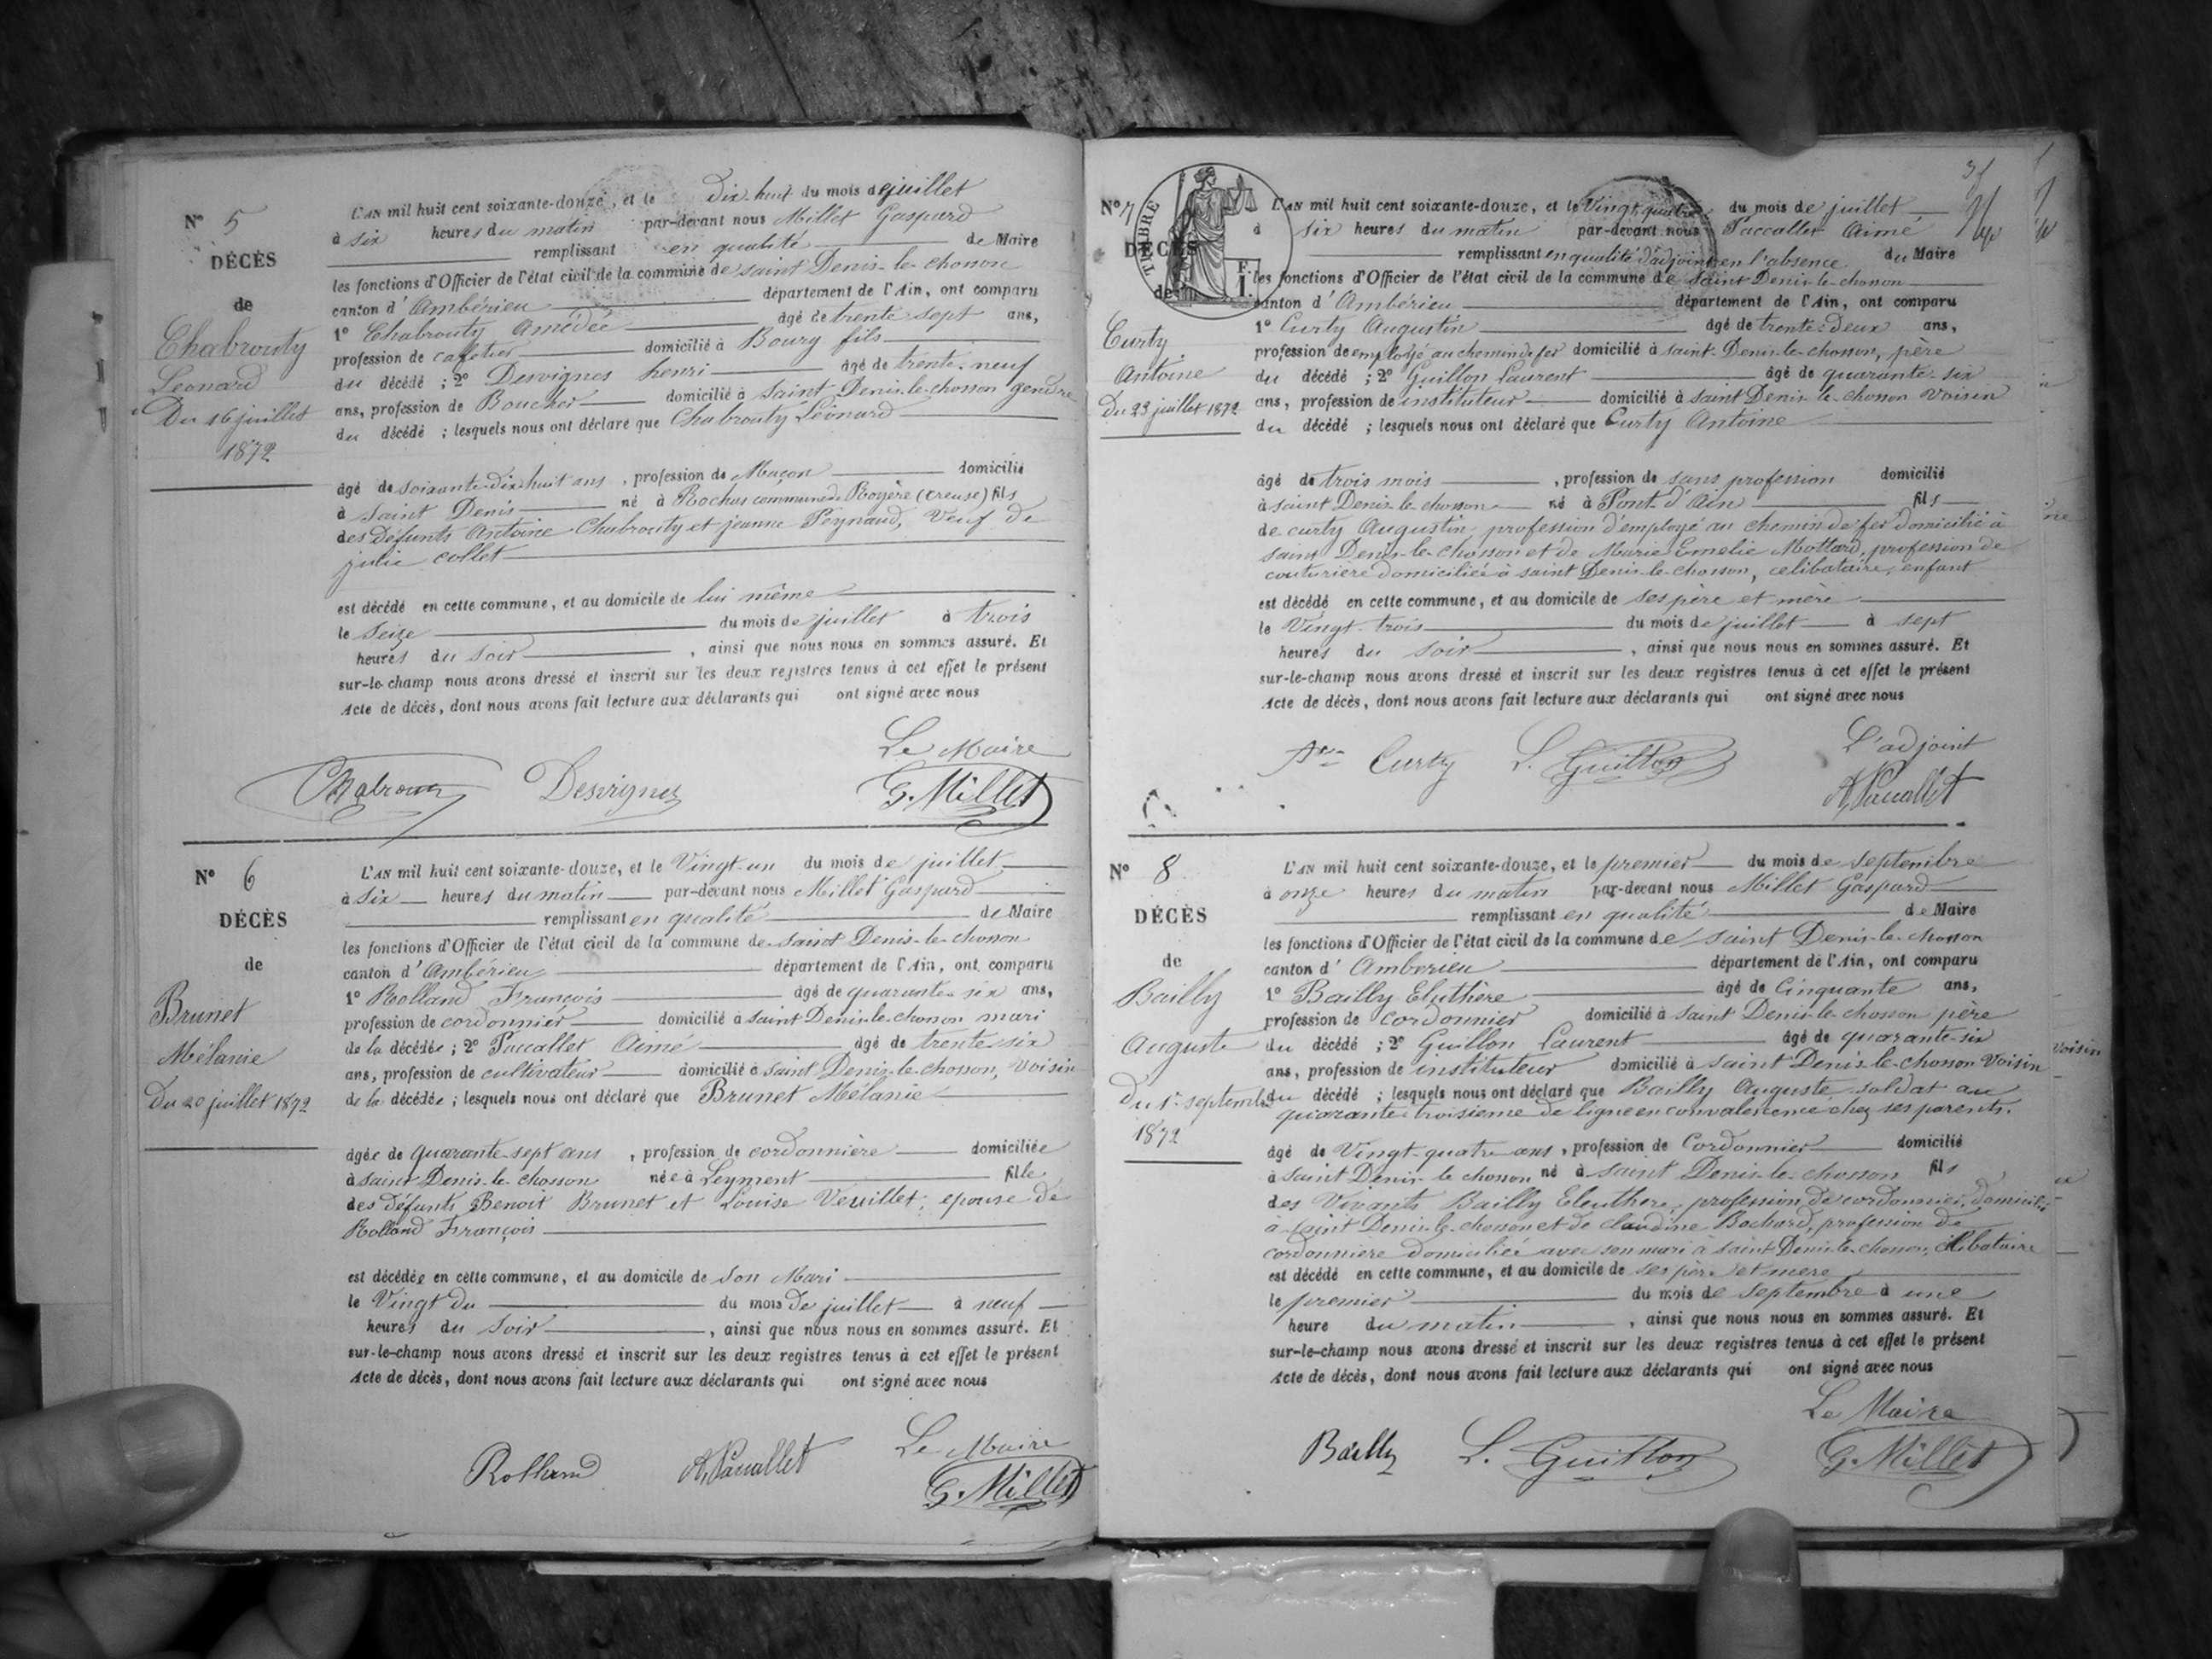 N° 5
DÉCÈS
de
Chabrouty
Léonard
Du 16 juillet
1872
L'AN mil huit cent soixante-douze, et le Dix huit du mois de juillet
à six heures du matin par-devant nous Millet Gaspard
remplissant en qualité de Maire
les fonctions d'Officier de l'état civil de la commune de saint Denis-le-chosson
canton d'Ambérieu département de l'Ain, ont comparu
1° Chabrouty Amédée âgé de trente sept ans,
profession de cafetier domicilié à Bourg fils
du décédé ; 2° Desvignes henri âgé de trente-neuf
ans, profession de Boucher domicilié à Saint Denis-le-chosson gendre
du décédé ; lesquels nous ont déclaré que Chabrouty Léonard
âgé de soixante-dix-huit ans, profession de Maçon domicilié
à Saint Denis né à Rochas commune de Royère (creuse) fils
des défunts Antoine Chabrouty et jeanne Peynaud, Veuf de
julie collet
est décédé en cette commune, et au domicile de lui même
le Seize du mois de juillet à trois
heures du soir, ainsi que nous nous en sommes assuré. Et
sur-le-champ nous avons dressé et inscrit sur les deux registres tenus à cet effet le présent
Acte de décès, dont nous avons fait lecture aux déclarants qui ont signé avec nous
Le Maire
Chabrouty Desvignes G. Millet
N° 6
DÉCÈS
de
Brunet
Mélanie
Du 20 juillet 1872
L'AN mil huit cent soixante-douze, et le Vingt-un du mois de juillet
à six heures du matin par-devant nous Millet Gaspard
remplissant en qualité de Maire
les fonctions d'Officier de l'état civil de la commune de saint Denis-le-chosson
canton d'Ambérieu département de l'Ain, ont comparu
1° Rolland François âgé de quarante-six ans,
profession de cordonnier domicilié à saint Denis-le-chosson mari
de la décédée ; 2° Paccallet Aimé âgé de trente-six
ans, profession de cultivateur domicilié à saint Denis-le-chosson, voisin
de la décédée ; lesquels nous ont déclaré que Brunet Mélanie
âgée de quarante-sept ans, profession de cordonnière domiciliée
à saint Denis-le-chosson née à Leyment fille
des défunts Benoit Brunet et Louise Veuillet, epouse de
Rolland François
est décédée en cette commune, et au domicile de son Mari
le Vingt du du mois de juillet à neuf
heures du soir, ainsi que nous nous en sommes assuré. Et
sur-le-champ nous avons dressé et inscrit sur les deux registres tenus à cet effet le présent
Acte de décès, dont nous avons fait lecture aux déclarants qui ont signé avec nous
Le Maire
Rolland A. Paccallet G. Millet
N° 7
DÉCÈS
de
Curty
Antoine
Du 23 juillet 1872
TIMBRE
L'AN mil huit cent soixante-douze, et le Vingt quatre du mois de juillet
à six heures du matin par-devant nous Paccallet Aimé
remplissant en qualité d'adjoint en l'absence du Maire
les fonctions d'Officier de l'état civil de la commune de Saint Denis-le-chosson
canton d'Ambérieu département de l'Ain, ont comparu
1° Curty Augustin âgé de trente-deux ans,
profession de employé au chemin de fer domicilié à saint-Denis-le-chosson, père
du décédé ; 2° Guillon Laurent âgé de quarante-six
ans, profession de instituteur domicilié à saint Denis-le-chosson voisin
du décédé ; lesquels nous ont déclaré que Curty Antoine
âgé de trois mois, profession de sans profession domicilié
à saint Denis-le-chosson né à Pont-d'Ain fils
de curty Augustin, profession d'employé au chemin de fer domicilié à
saint Denis-le-chosson et de Marie Emelie Mottard, profession de
couturière domiciliée à saint Denis-le-chosson, celibataire, enfant
est décédé en cette commune, et au domicile de ses père et mère
le Vingt-trois du mois de juillet à sept
heures du soir, ainsi que nous nous en sommes assuré. Et
sur-le-champ nous avons dressé et inscrit sur les deux registres tenus à cet effet le présent
Acte de décès, dont nous avons fait lecture aux déclarants qui ont signé avec nous
L'adjoint
Curty L. Guillon A. Paccallet
N° 8
DÉCÈS
de
Bailly
Auguste
Du 1er septembre
1872
L'AN mil huit cent soixante-douze, et le premier du mois de septembre
à onze heures du matin par-devant nous Millet Gaspard
remplissant en qualité de Maire
les fonctions d'Officier de l'état civil de la commune de saint Denis-le-chosson
canton d'Amberieu département de l'Ain, ont comparu
1° Bailly Eluthère âgé de Cinquante ans,
profession de cordonnier domicilié à saint Denis-le-chosson père
du décédé ; 2° Guillon Laurent âgé de quarante-six
ans, profession de instituteur domicilié à saint Denis-le-chosson voisin
du décédé ; lesquels nous ont déclaré que Bailly Auguste soldat au
quarante-troisieme de ligne en convalescence chez ses parents.
âgé de Vingt-quatre ans, profession de Cordonnier domicilié
à saint Denis-le-chosson né à saint Denis-le-chosson fils
des Vivants Bailly Eleuthere, profession de cordonnier, domicilié
à saint Denis-le-chosson et de claudine Bochard, profession de
cordonniere domiciliée avec son mari à saint Denis-le-chosson, célibataire
est décédé en cette commune, et au domicile de ses père et mere
le premier du mois de septembre à une
heure du matin, ainsi que nous nous en sommes assuré. Et
sur-le-champ nous avons dressé et inscrit sur les deux registres tenus à cet effet le présent
Acte de décès, dont nous avons fait lecture aux déclarants qui ont signé avec nous
Le Maire
Bailly L. Guillon G. Millet
voisin